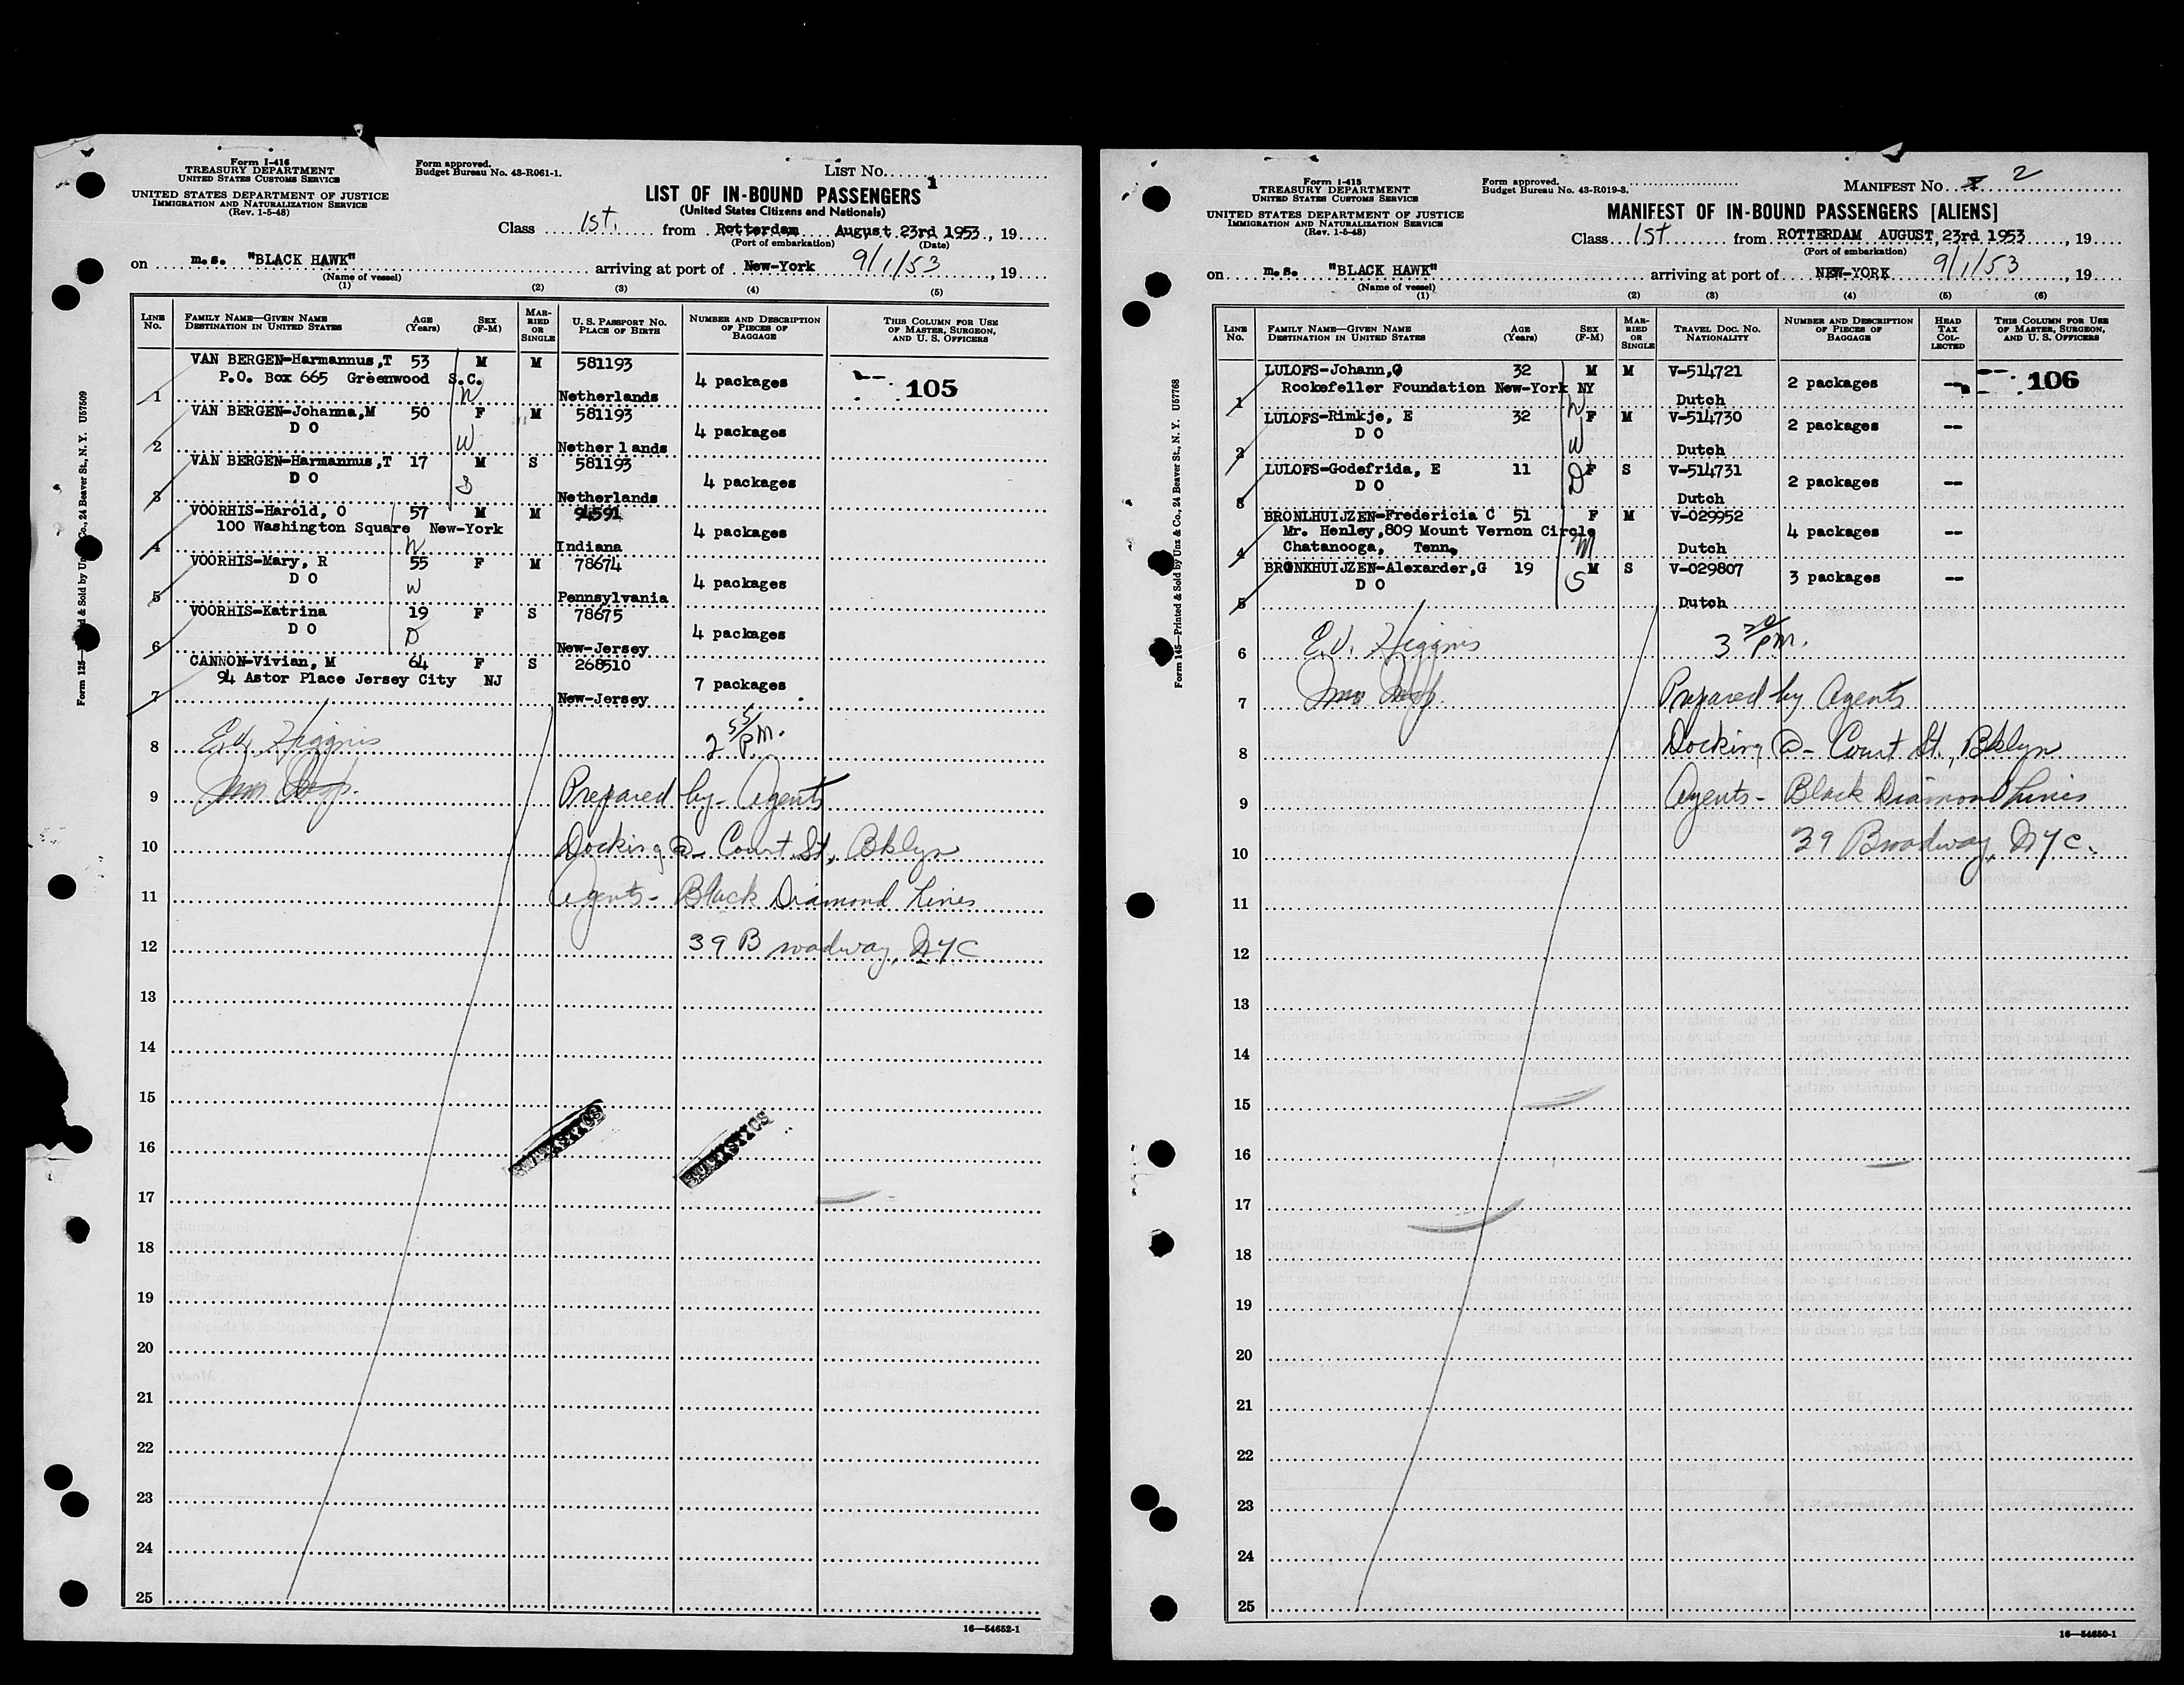 Form I-416
TREASURY DEPARTMENT
UNITED STATES CUSTOMS SERVICE
UNITED STATES DEPARTMENT OF JUSTICE
IMMIGRATION AND NATURALIZATION SERVICE
(Rev. 1-5-48)
Form approved.
Budget Bureau No. 43-R061-1.
LIST No. 1
LIST OF IN-BOUND PASSENGERS
(United States Citizens and Nationals)
Class 1st. from Rotterdam August 23rd 1953, 19
(Port of embarkation) (Date)
on m.s. "BLACK HAWK" arriving at port of New-York 9/1/53, 19
(Name of vessel)
(1) (2) (3) (4) (5)
LINE No. FAMILY NAME—GIVEN NAME DESTINATION IN UNITED STATES AGE (Years) SEX (F-M) MARRIED OR SINGLE U. S. PASSPORT NO. PLACE OF BIRTH NUMBER AND DESCRIPTION OF PIECES OF BAGGAGE THIS COLUMN FOR USE OF MASTER, SURGEON, AND U. S. OFFICERS
VAN BERGEN-Harmannus,T 53 M M 581193
P.O. Box 665 Greenwood S.C. 4 packages 105
1 Netherlands
VAN BERGEN-Johanna,M 50 F M 581193
D O W 4 packages
2 Netherlands
VAN BERGEN-Harmannus,T 17 M S 581193
D O S 4 packages
3 Netherlands
VOORHIS-Harold, O 57 M M 94591
100 Washington Square New-York 4 packages
4 Indiana
VOORHIS-Mary, R 55 F M 78674
D O W 4 packages
5 Pennsylvania
VOORHIS-Katrina 19 F S 78675
D O D 4 packages
6 New-Jersey
CANNON-Vivian, M 64 F S 268510
94 Astor Place Jersey City NJ 7 packages
7 New-Jersey
8 E.V. Higgins 2 55 P.M.
9 Prepared by - Agents
10 Docking @ - Court St., Bklyn
11 Agents - Black Diamond Lines
12 39 Broadway, NYC
13
14
15
16 STATISTICS STATISTICS
17
18
19
20
21
22
23
24
25
16—54652-1
Form 125—Printed & Sold by Unz & Co., 24 Beaver St., N. Y. U57509
Form I-415
TREASURY DEPARTMENT
UNITED STATES CUSTOMS SERVICE
UNITED STATES DEPARTMENT OF JUSTICE
IMMIGRATION AND NATURALIZATION SERVICE
(Rev. 1-5-48)
Form approved.
Budget Bureau No. 43-R019-3.
MANIFEST No. 2
MANIFEST OF IN-BOUND PASSENGERS [ALIENS]
Class 1st from ROTTERDAM AUGUST, 23rd 1953, 19
(Port of embarkation)
on m.s. "BLACK HAWK" arriving at port of NEW-YORK 9/1/53, 19
(Name of vessel)
(1) (2) (3) (4) (5) (6)
LINE No. FAMILY NAME—GIVEN NAME DESTINATION IN UNITED STATES AGE (Years) SEX (F-M) MARRIED OR SINGLE TRAVEL DOC. NO. NATIONALITY NUMBER AND DESCRIPTION OF PIECES OF BAGGAGE HEAD TAX COLLECTED THIS COLUMN FOR USE OF MASTER, SURGEON, AND U. S. OFFICERS
LULOFS-Johann,G 32 M M V-514721
Rockefeller Foundation New-York NY 2 packages -- 106
1 Dutch
LULOFS-Rimkje, E 32 F M V-514730
D O W 2 packages --
2 Dutch
LULOFS-Godefrida, E 11 F S V-514731
D O D 2 packages --
3 Dutch
BRONLHUIJZEN-Fredericia C 51 F M V-029952
Mr. Henley,809 Mount Vernon Circle 4 packages --
4 Chatanooga, Tenn. M Dutch
BRONKHUIJZEN-Alexander,G 19 M S V-029807
D O S 3 packages --
5 Dutch
6 E.V. Higgins 3 20 P.M.
7 Prepared by Agents
8 Docking @ - Court St., Bklyn
9 Agents - Black Diamond Lines
10 39 Broadway, NYC.
11
12
13
14
15
16
17
18
19
20
21
22
23
24
25
16—54650-1
Form 145—Printed & Sold by Unz & Co., 24 Beaver St., N. Y. U57768